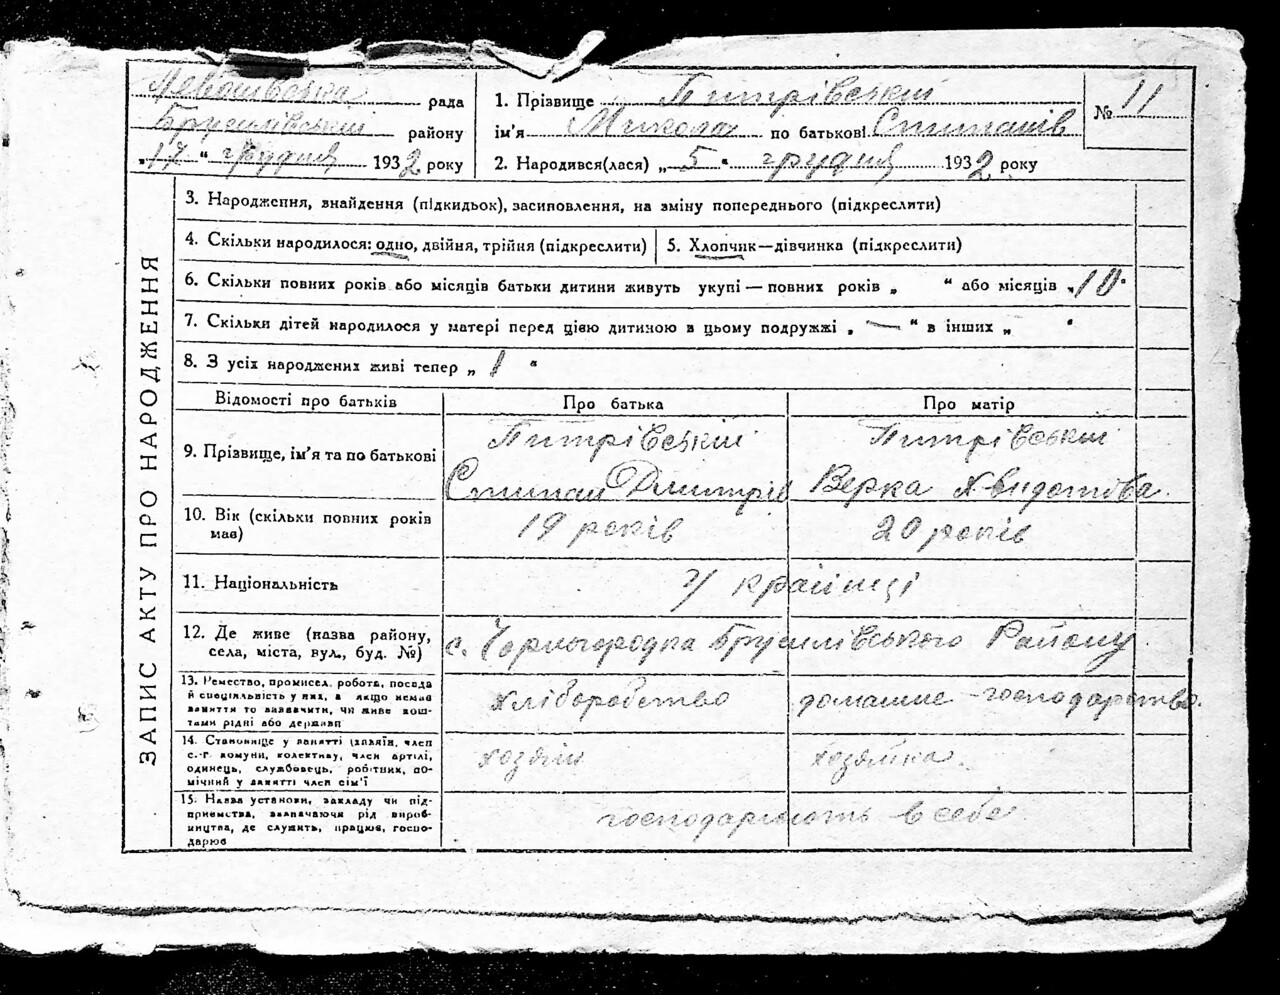 рада
Брусилівський району
„17“ грудня 1932 року
1. Прізвище Питрівський
ім'я Микола по батькові Стипанів
2. Народився(лася) „5“ грудня 1932 року
№ 11
ЗАПИС АКТУ ПРО НАРОДЖЕННЯ
3. Народження, знайдення (підкидьок), засиновлення, на зміну попереднього (підкреслити)
4. Скільки народилося: одно, двійня, трійня (підкреслити)
5. Хлопчик—дівчинка (підкреслити)
6. Скільки повних років або місяців батьки дитини живуть укупі — повних років „ “ або місяців „10“
7. Скільки дітей народилося у матері перед цією дитиною в цьому подружжі „—“ в інших „ “
8. З усіх народжених живі тепер „1“
Відомості про батьків
Про батька
Про матір
9. Прізвище, ім'я та по батькові
Питрівський
Стипан Дмитрів
Питрівський
Вєрка Хвидотова
10. Вік (скільки повних років
мав)
19 років
20 років
11. Національність
Українці
12. Де живе (назва району,
села, міста, вул., буд. №)
с. Чорногородка Брусилівського Району
13. Ремество, промисел, робота, посада
й спеціяльність у них, а якщо немає
заняття то визначити, чи живе кош-
тами рідні або держави
хліборобство
домашне-господарство.
14. Становище у занятті (хазяїн, член
с.-г. комуни, колективу, член артілі,
одинець, службовець, робітник, по-
мічний у занятті член сім'ї
хозяін
хозяйка.
15. Назва установи, закладу чи під-
приємства, зазначаючи рід вироб-
ництва, де служить, працює, госпо-
дарює
господарюють в себе